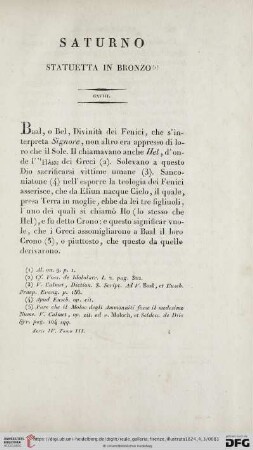 SATURNO
STATUETTA IN BRONZO (1)
Baal, o Bel, Divinità dei Fenici, che s'in-
terpreta Signore, non altro era appresso di lo-
ro che il Sole. Il chiamavano anche Hel, d'on-
de l' dei Greci (2). Solevano a questo
Dio sacrificarsi vittime umane (3). Sanco-
niatone (4) nell'esporre la teologia dei Fenici
asserisce, che da Elium nacque Cielo, il quale,
presa Terra in moglie, ebbe da lei tre figliuoli,
l'uno dei quali si chiamò Ilo (lo stesso che
Hel), e fu detto Crono: e questo significar vuo-
le, che i Greci assomigliarono a Baal il loro
Crono (5), o piuttosto, che questo da quelle
derivarono.
(1) Al. on. 9. p. 1.
(2) Voss. de Idololatr. l. 2. pag. 322.
(3) V. Calmet, Diction. S. Script. Ad V. Baal, et Euseb.
Praep. Evang. p. 156.
(4) Apud Euseb. op. cit.
(5) Pare che il Moloc degli Ammoniti fosse il medesimo
Nume. V. Calmet, op. cit. ad v. Moloch, et Selden. de Diis
Syr. pag. 164 sqq.
Serie IV. Tomo III.
DFG